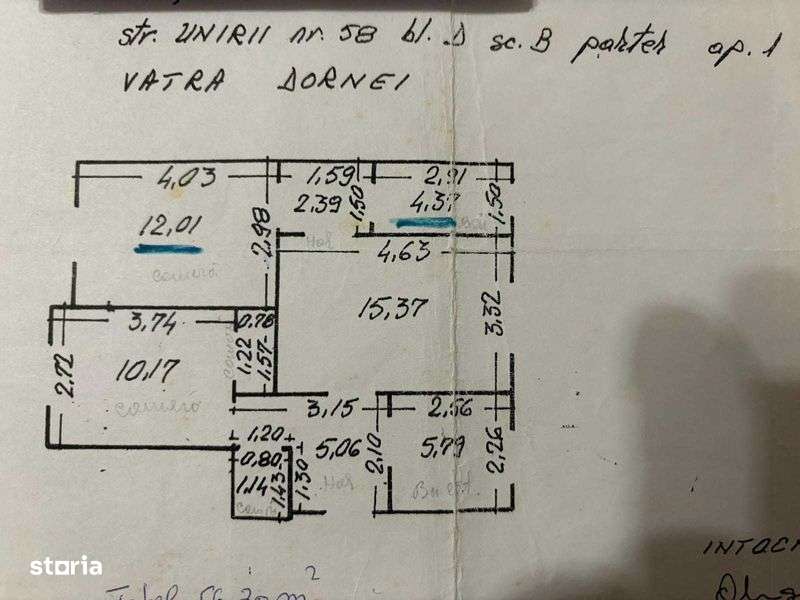 str. UNIRII nr. 58 bl. D sc. B parter ap. 1
VATRA DORNEI
4,03 1,59 2,91
12,01 2,39 1,50 4,37 1,50
2,98 Hol Bai
camera 4,63
15,37 3,32
3,74 0,78
2,72 10,17 1,22 1,57
camera
3,15 2,56
1,20 5,06 2,10 5,79 2,26
0,80
1,14 1,43 1,30 Hol Bucăt.
INTOCM
storia